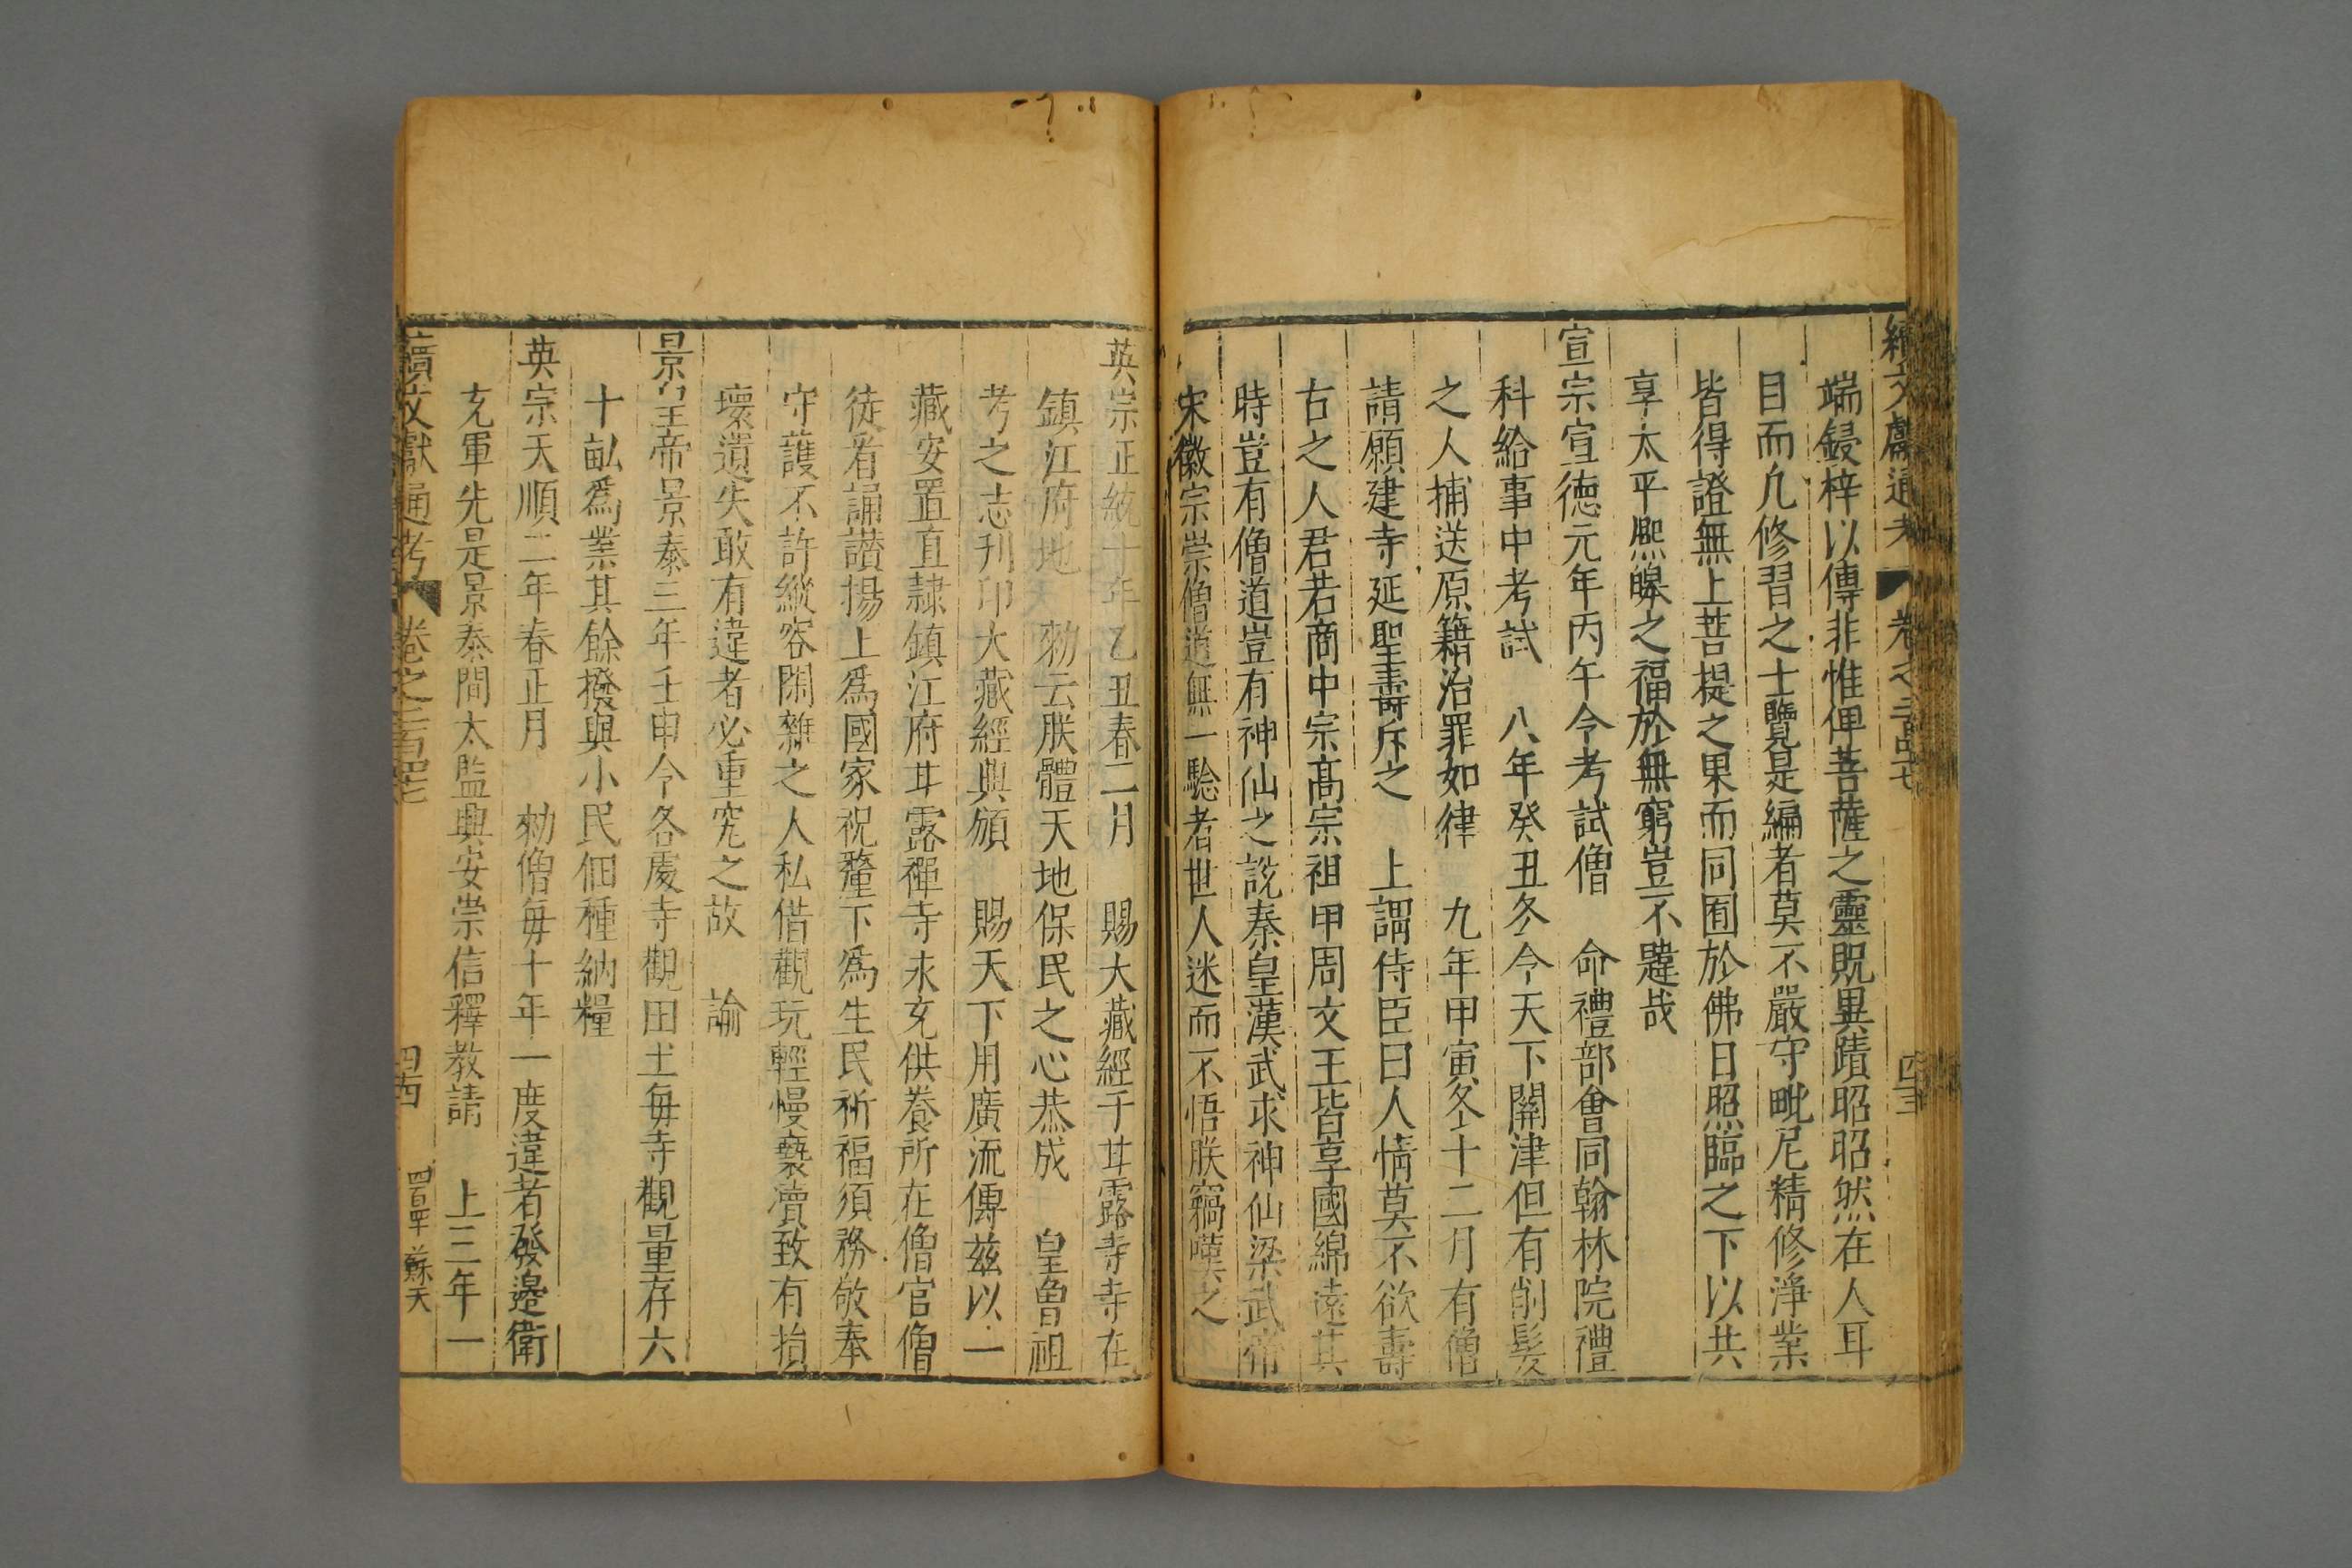 續文獻通考 卷之二百四十七 四十三
端鋟梓以傳非惟俾菩薩之靈貺異蹟昭昭然在人耳
目而凡修習之士覽是編者莫不嚴守毗尼精修淨業
皆得證無上菩提之果而同囿於佛日照臨之下以共
享太平熈皥之福於無窮豈不韙哉
宣宗宣德元年丙午令考試僧 命禮部會同翰林院禮
科給事中考試 八年癸丑冬令天下關津但有削髮
之人捕送原籍治罪如律 九年甲寅冬十二月有僧
請願建寺延聖壽斥之 上謂侍臣曰人情莫不欲壽
古之人君若商中宗髙宗祖甲周文王皆享國綿遠其
時豈有僧道豈有神仙之說秦皇漢武求神仙梁武帝
宋徽宗崇僧道無一驗者世人迷而不悟朕竊嘆之
英宗正統十年乙丑春二月 賜大藏經于甘露寺寺在
鎮江府地 勑云朕體天地保民之心恭成 皇曾祖
考之志刋印大藏經典頒 賜天下用廣流傳兹以一
藏安置直隷鎮江府甘露禪寺永充供養所在僧官僧
徒看誦讃揚上爲國家祝釐下爲生民祈福須務敬奉
守護不許縱容閑雜之人私借觀玩輕慢褻瀆致有損
壞遺失敢有違者必重究之故 諭
景皇帝景泰三年壬申令各處寺觀田土毎寺觀量存六
十畝爲業其餘撥與小民佃種納糧
英宗天順二年春正月 勑僧毎十年一度違者發邊衛
充軍先是景泰間太監興安崇信釋教請 上三年一
續文獻通考 卷之二百四十七 四十四 蘇天